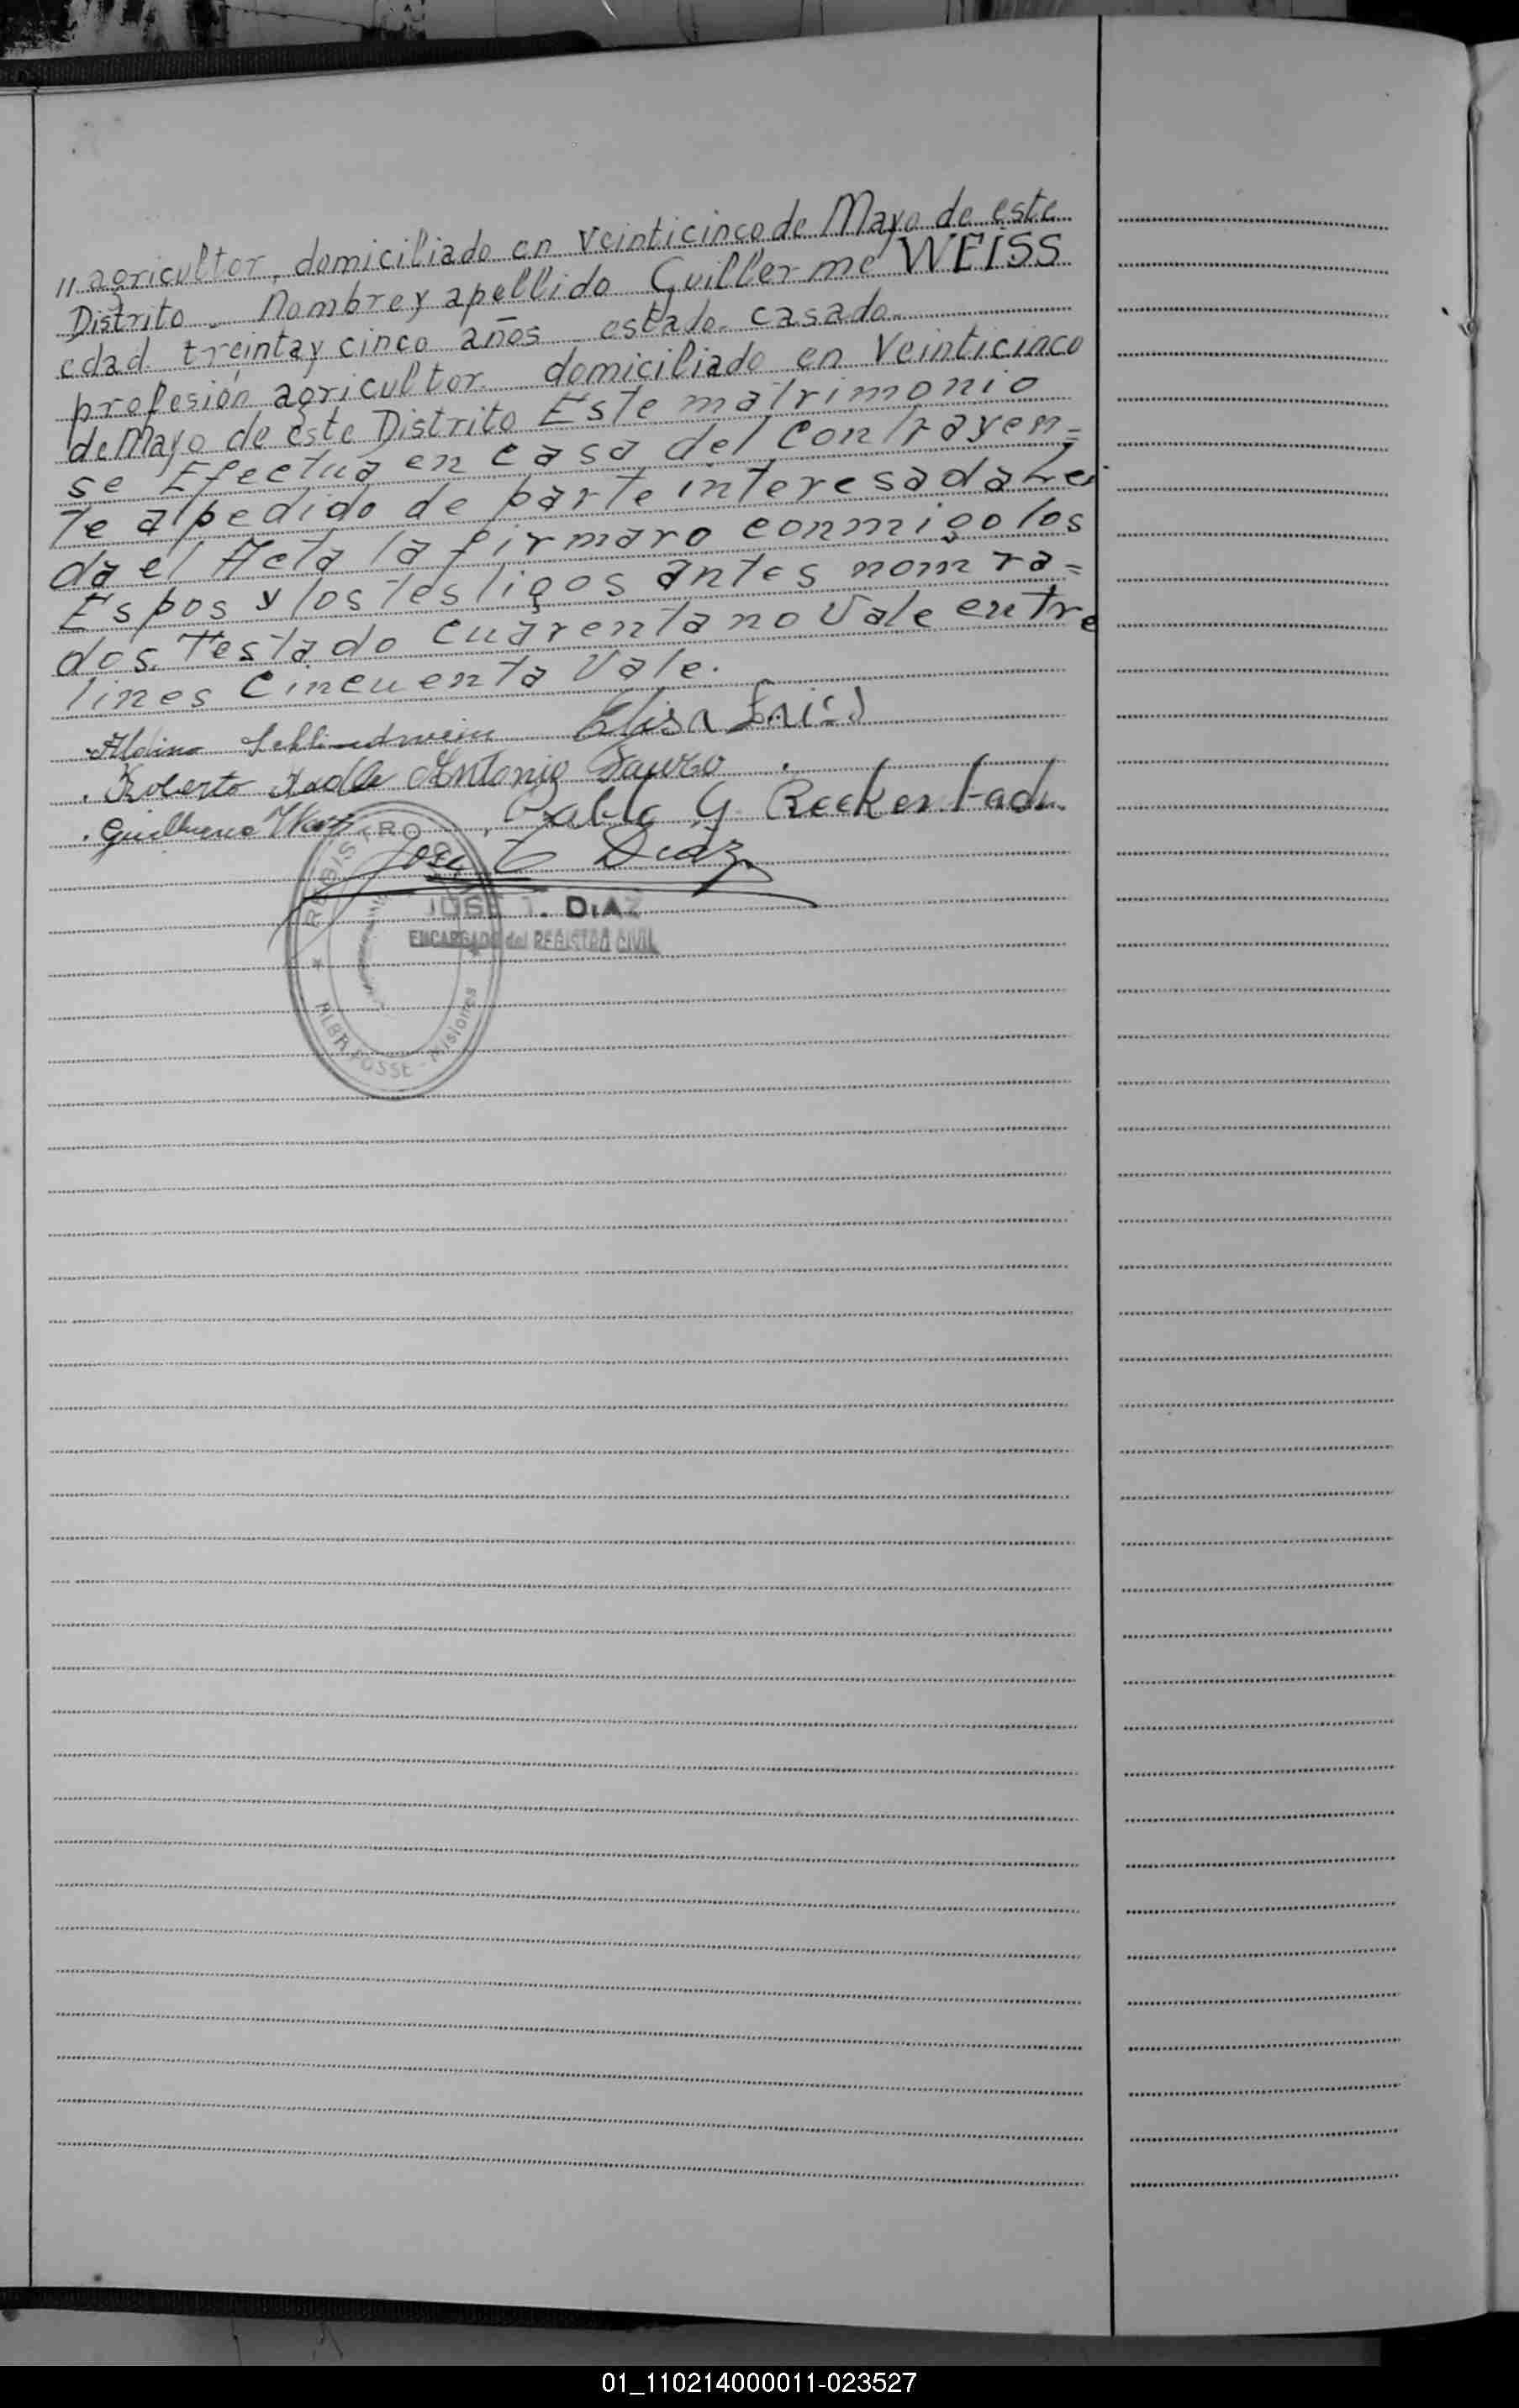 " agricultor, domiciliado en Veinticinco de Mayo de este
Distrito. Nombre y apellido Guillermo WEISS
edad treinta y cinco años estado casado
profesión agricultor domiciliado en Veinticinco
de Mayo de este Distrito Este matrimonio
se Efectúa en casa del Contrayen=
te al pedido de parte interesada Lei
da el Acta la firmaro conmigo los
Espos y los testigos antes nomra=
dos. Testado cuarenta no Vale entre
lines Cincuenta Vale.
Aldino Elisa
Roberto Antonio
Guillermo Weiss Pablo G.
Jose T Diaz
JOSE T. DIAZ
ENCARGADO del REGISTRO CIVIL
REGISTRO CIVIL
ALBA POSSE - Misiones
01_110214000011-023527